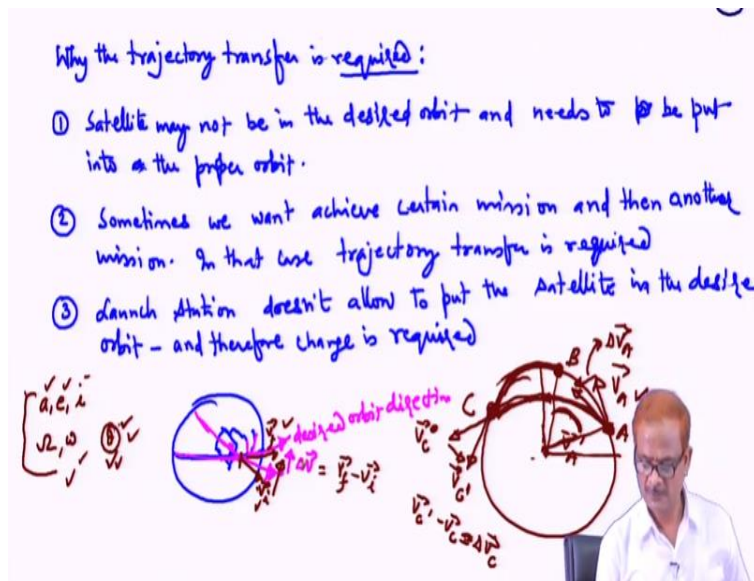 Why the trajectory transfer is required :
① Satellite may not be in the desired orbit and needs to be put
into the proper orbit.
② Sometimes we want achieve certain mission and then another
mission. In that case trajectory transfer is required
③ Launch station doesn't allow to put the satellite in the desire
orbit - and therefore change is required
a, e, i
Ω, ω θ
desired orbit direction
V⃗f
ΔV⃗ = V⃗f - V⃗i
V⃗i
B
ΔV⃗A
V⃗A
C
A
V⃗c
V⃗c'
V⃗c' - V⃗c = ΔV⃗c